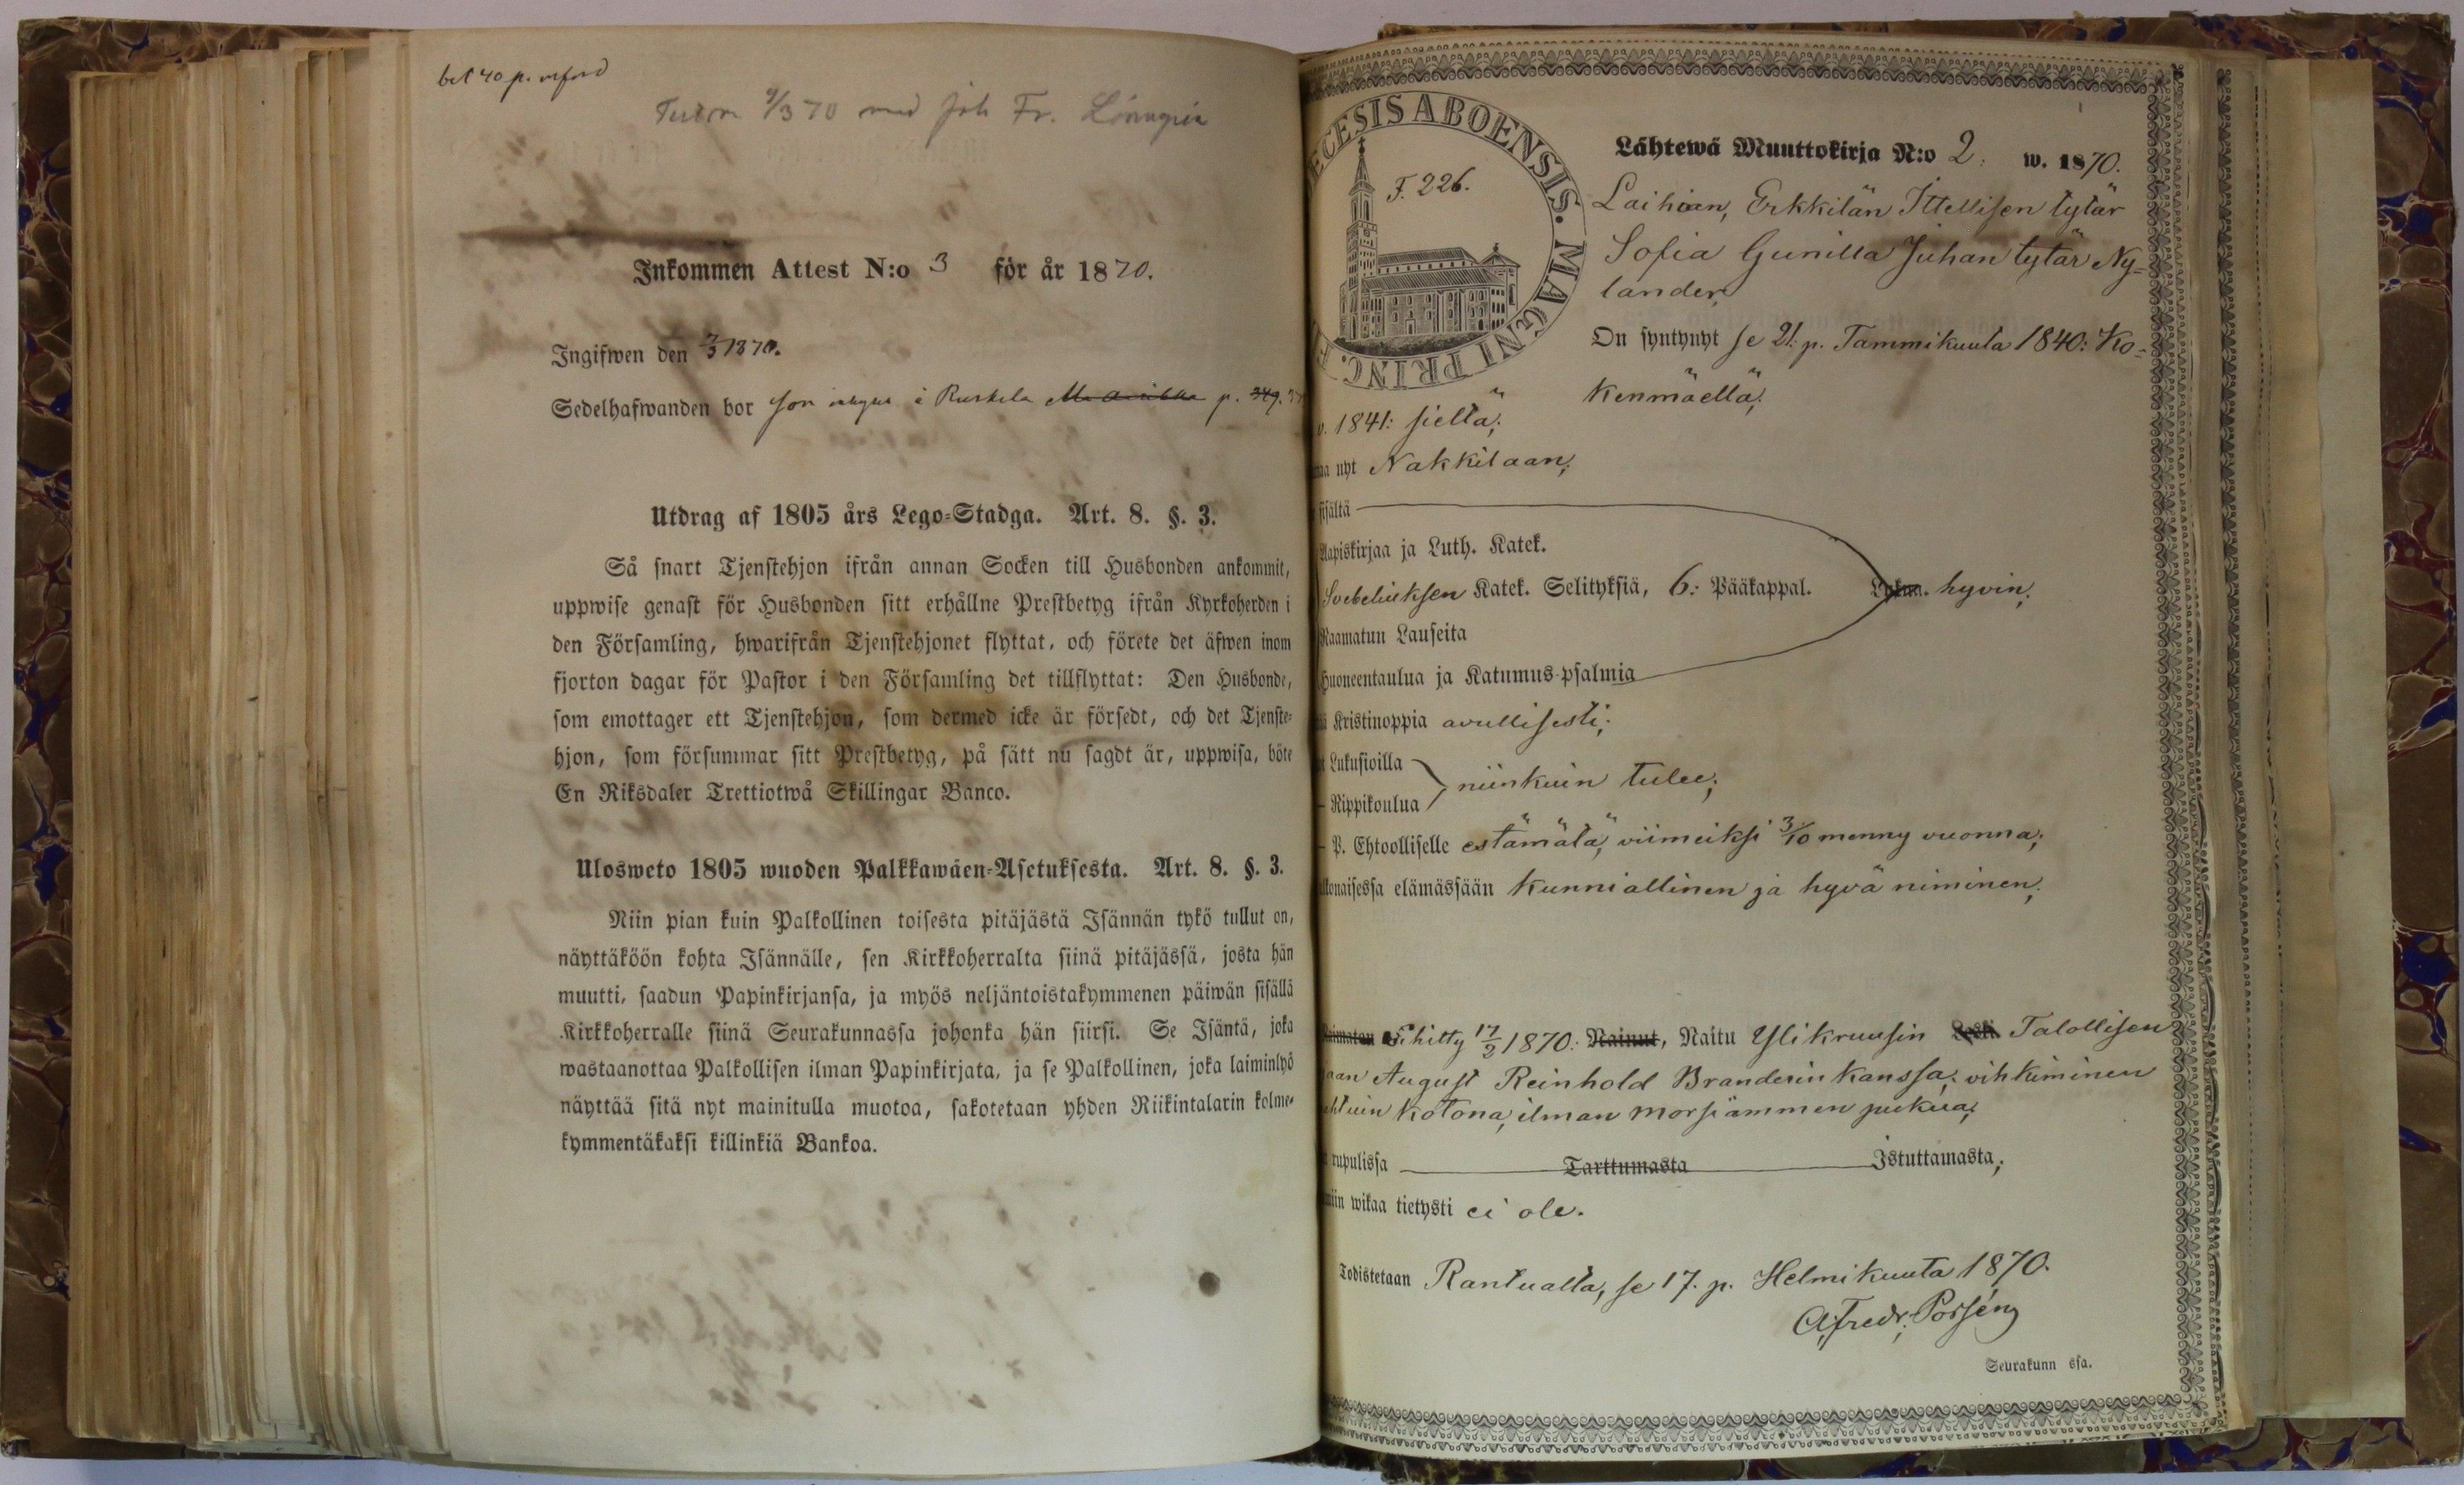 bet 40 p.
9/3 70 med Joh Fr.
Inkommen Attest N:o 3 för år 1870.
Ingifwen den 7/3 1870.
Sedelhafwanden bor i p. 349.
Utdrag af 1805 års Lego-Stadga. Art. 8. §. 3.
Så snart Tjenstehjon ifrån annan Socken till Husbonden ankommit,
uppwise genast för Husbonden sitt erhållne Prestbetyg ifrån Kyrkoherden i
den Församling, hwarifrån Tjenstehjonet flyttat, och förete det äfwen inom
fjorton dagar för Pastor i den Församling det tillflyttat: Den Husbonde,
som emottager ett Tjenstehjon, som dermed icke är försedt, och det Tjenste-
hjon, som försummar sitt Prestbetyg, på sätt nu sagdt är, uppwisa, böte
En Riksdaler Trettiotwå Skillingar Banco.
Ulosweto 1805 wuoden Palkkawäen-Asetuksesta. Art. 8. §. 3.
Niin pian kuin Palkollinen toisesta pitäjästä Isännän tykö tullut on,
näyttäköön kohta Isännälle, sen Kirkkoherralta siinä pitäjässä, josta hän
muutti, saadun Papinkirjansa, ja myös neljäntoistakymmenen päiwän sisällä
Kirkkoherralle siinä Seurakunnassa johonka hän siirsi. Se Isäntä, joka
wastaanottaa Palkollisen ilman Papinkirjata, ja se Palkollinen, joka laiminlyö
näyttää sitä nyt mainitulla muotoa, sakotetaan yhden Riikintalarin kolme-
kymmentäkaksi killinkiä Bankoa.
ECESIS ABOENSIS. MAGNI PRINC. F
F. 226.
Lähtewä Muuttokirja N:o 2. w. 1870.
Laihian, Erkkilän Ittellisen tytär
Sofia Gunilla Juhan tytär Ny=
lander,
On syntynyt se 21. p. Tammikuuta 1840: Ko=
kenmäellä;
1841: siellä;
nyt Nakkilaan;
sisältä
Aapiskirjaa ja Luth. Katek.
Svebeliuksen Katek. Selityksiä, 6: Pääkappal. Lukun. hyvin;
Raamatun Lauseita
Huoneentaulua ja Katumus-psalmia
Kristinoppia avullisesti;
Lukusioilla
Rippikoulua niinkuin tulee;
P. Ehtoolliselle estämätä, viimeiksi 3/10 menny vuonna;
elämässään kunniallinen ja hyvä niminen;
17/2 1870: Nainut, Naitu Ylikruusin Talollisen
August Reinhold Branderin kanssa; vihkiminen
kotona, ilman morsiammen pukua;
rupulissa Tarttumasta Istuttamasta;
wikaa tietysti ei ole.
Todistetaan Rantualla, se 17. p. Helmikuuta 1870.
A. Fredr. Porsén
Seurakunn ssa.